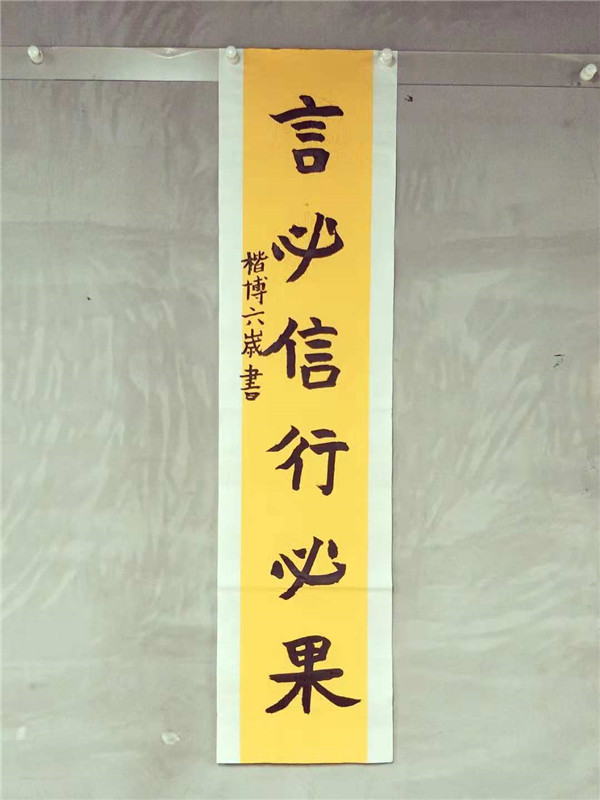 言必信行必果
楷博六歲書